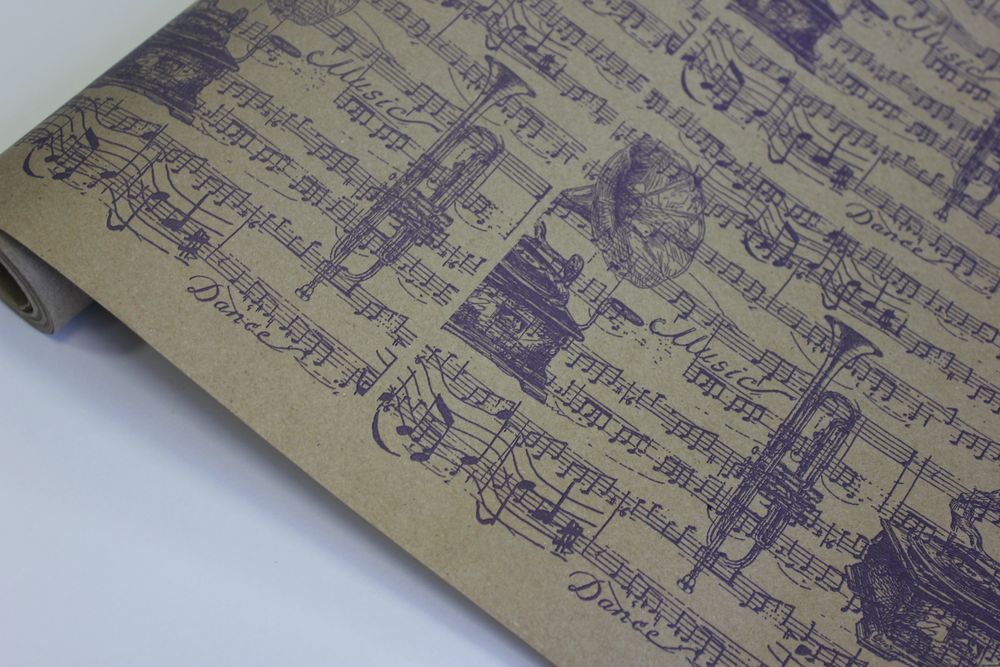 Music
Dance
Music
Dance
Dance